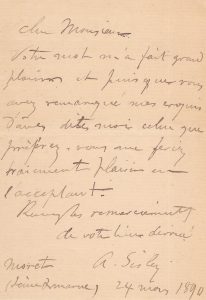 Cher Monsieur
Votre mot m'a fait grand
plaisir et puisque vous
avez remarqué mes croquis
d'ânes dites moi celui que
préférez. vous me ferez
vraiment plaisir en
l'acceptant.
remerciements
de votre bien dévoué
A. Sisley
Moret
(Seine & Marne) 24 mars 1890